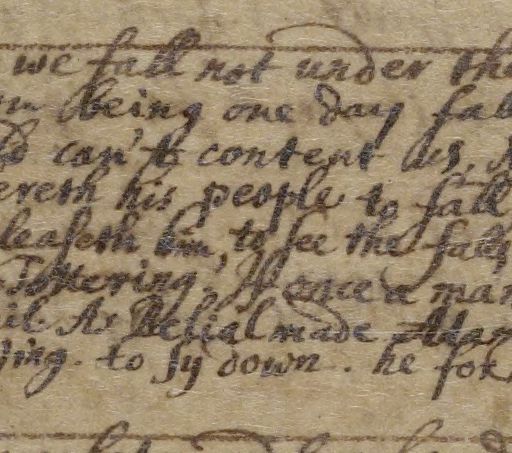 we fall not under tha
being one day fall
can't content us,
ereth his people to fall
leaseth him, to see the falls
Tottering. If once a man
As Belial made Adam
ying. to ly down. he for